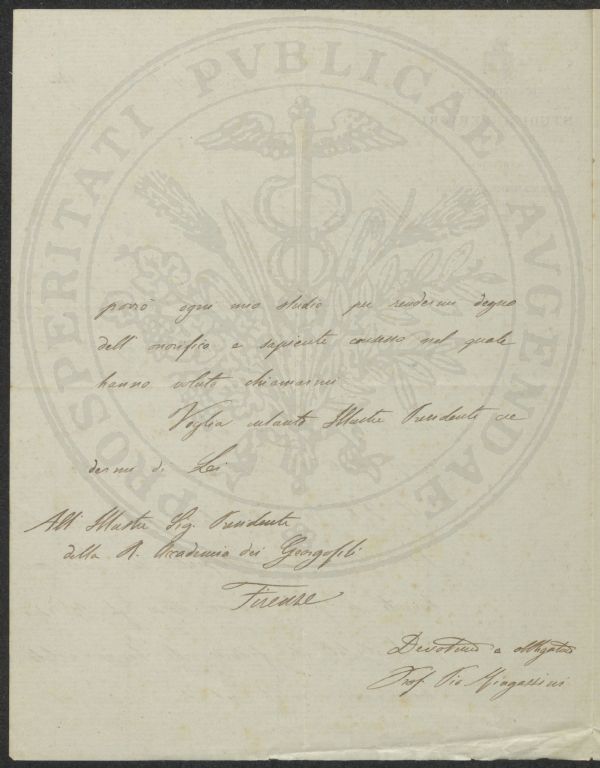 PROSPERITATI PVBLICAE AVGENDAE
porrò ogni mio studio per rendermi degno
dell' onorifico e sapiente consesso nel quale
hanno voluto chiamarmi
Voglia intanto Illustre Presidente cre
dermi di Lei
All' Illustre Sig. Presidente
della R. Accademia dei Georgofili
Firenze
Devotmo e obbligatmo
Prof. Pio Mingazzini